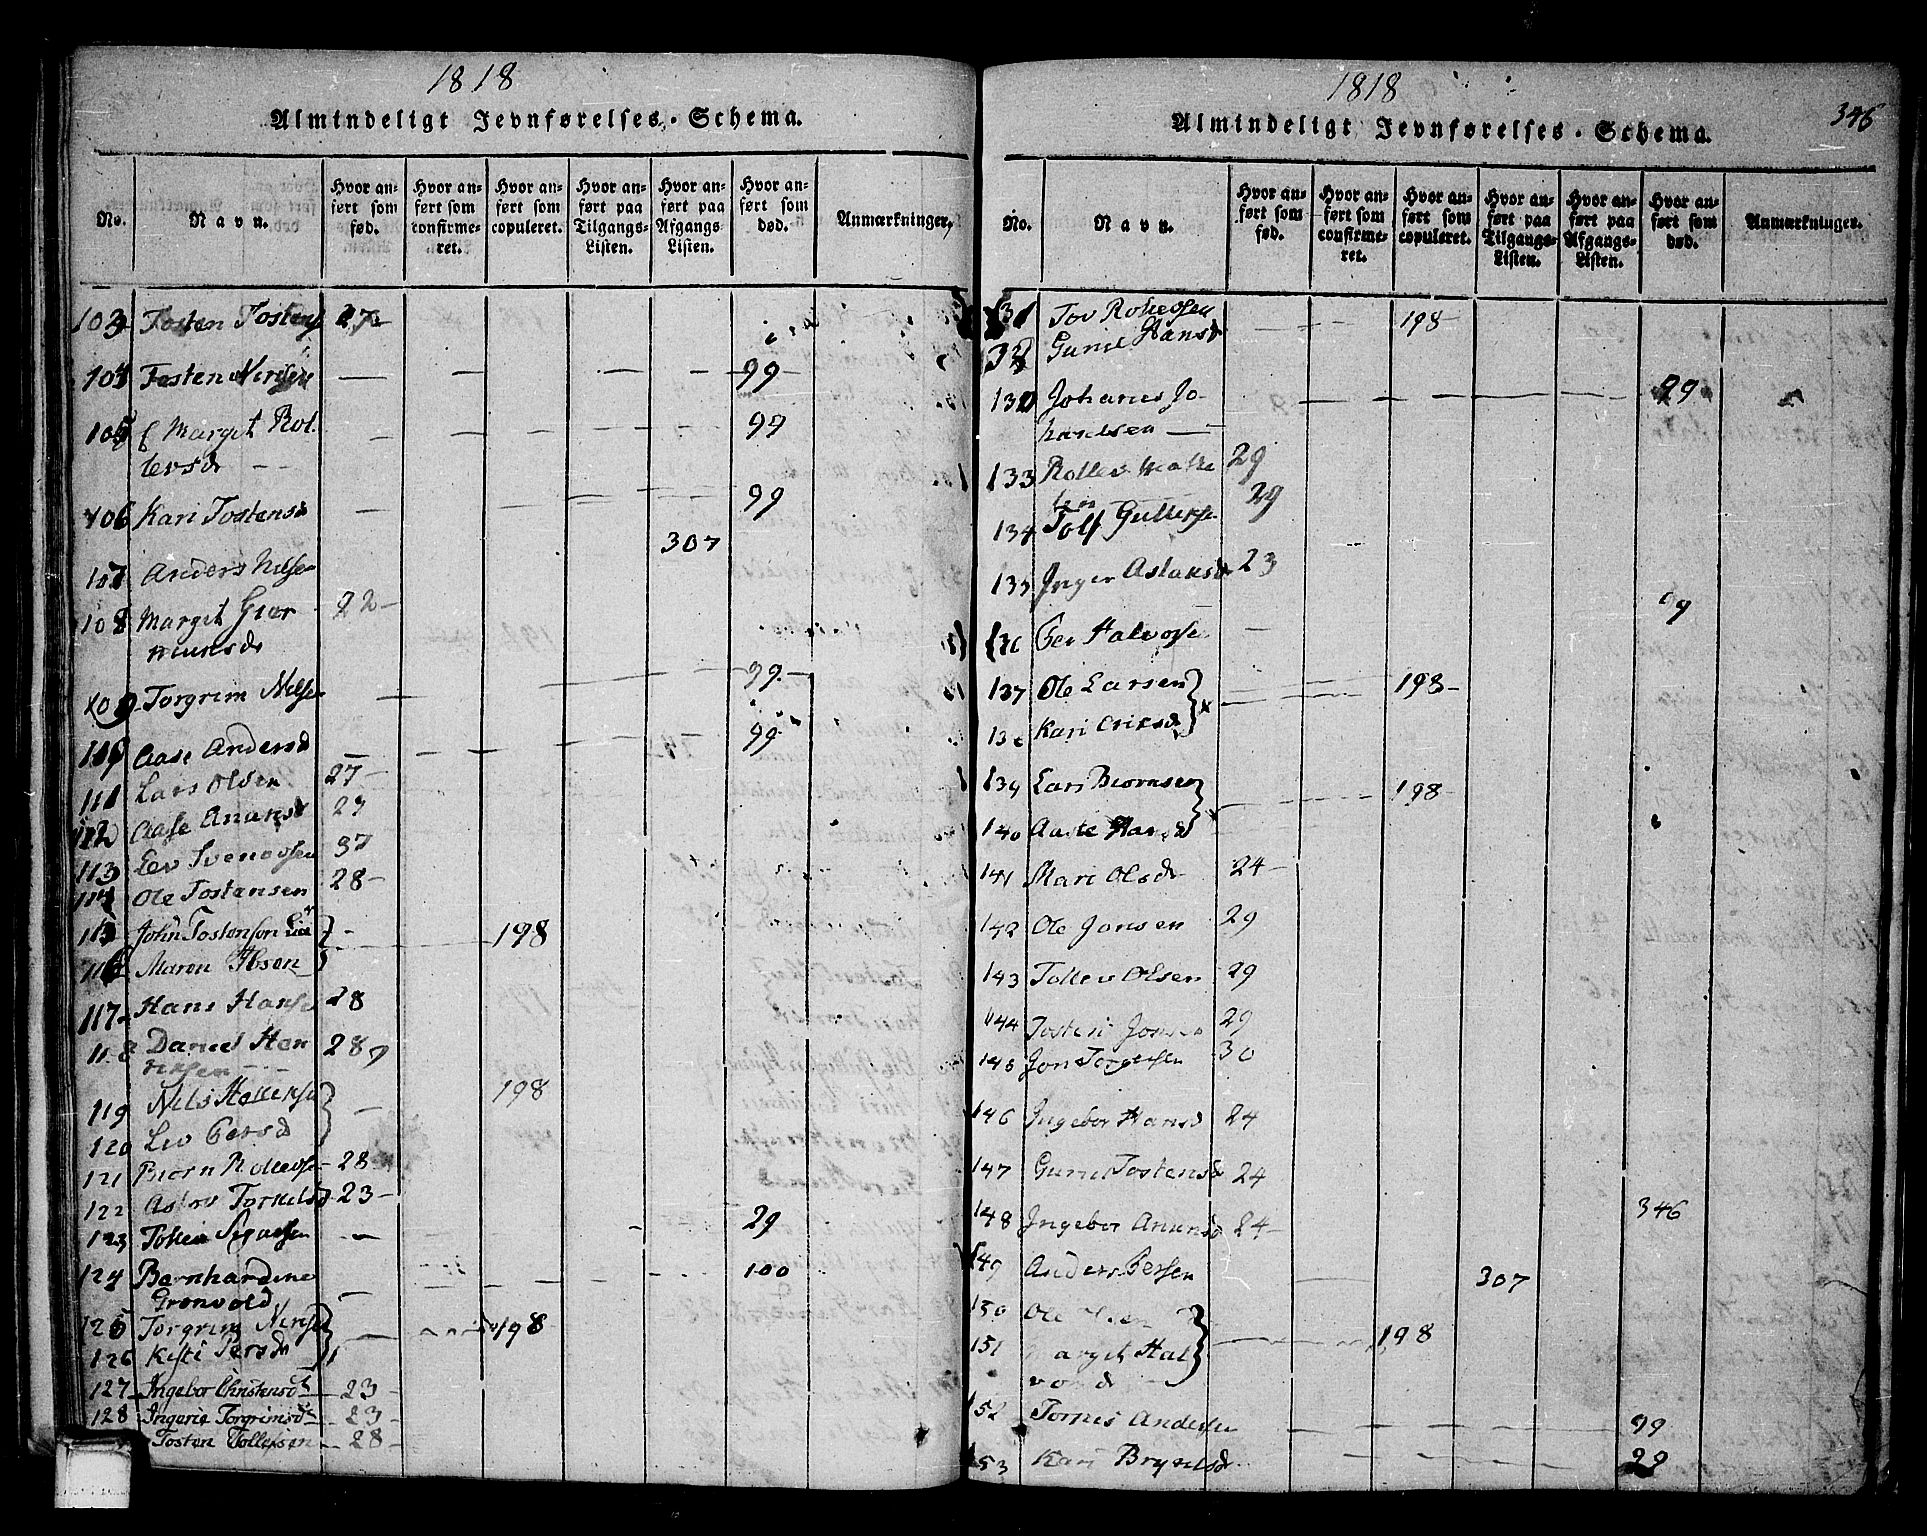 1818
Almindeligt Jevnførelses-Schema.
No.
Navn.
Hvor anført som fød.
Hvor anført som confirmeret.
Hvor anført som copuleret.
Hvor anført paa Tilgangs-Listen.
Hvor anført paa Afgangs-Listen.
Hvor anført som død.
Anmærkninger.
103 Tosten Tostens 27
104 Tosten Nirisen — — — — 99
105 Marget Rol — — — 99
levsd — —
106 Kari Tostensd — — — 99
107 Anders Nilsen 307
108 Marget Gior 22 —
munsd
109 Torgrim Nilsen — — — 99 —
110 Aase Andersd — — — 99
111 Lars Olsen 27 —
112 Aase Anansd 27
113 Lev Svenovsen 37
114 Ole Tostensen 28 —
115 John Tostenson — — 198
116 Maren Ibsen
117 Hans Hansen 28
118 Daniel Hen 28
riksen — —
119 Nils Halleksen — 198
120 Liv Persd
121 Biorn Rolleofse — 28
122 Aslov Torkelsd — 23 —
123 Tollev — — 29
124 Bernhardine — — — — 100
Grønvold
125 Torgrim Nirisen — — 198
126 Kisti Persd
127 Ingebor Christensd — 23 —
128 Ingerie Torgrimsd — 23 —
Tosten Tollefsen — 28 —
1818
346
Almindeligt Jevnførelses-Schema.
No.
Navn.
Hvor anført som fød.
Hvor anført som confirmeret.
Hvor anført som copuleret.
Hvor anført paa Tilgangs-Listen.
Hvor anført paa Afgangs-Listen.
Hvor anført som død.
Anmærkninger.
131 Tov Rolleofsen — — 198 —
Gunil Hansd
132 Johanes Jo — — — — — 99
hanesen —
133 Rollev 29
134 Tolf Gulleksen 29
135 Inger Aslaksd 23
136 Per Halvorsen — 99
137 Ole Larsen — — 198 —
138 Kari Eriksd
139 Lars Biornsen — — 198 —
140 Aaste Hansd
141 Mari Olsd 24 —
142 Ole Jonsen 29
143 Tollev Olsen 29
144 Tosten Jonsen 29
145 Jon Torgersen 30
146 Ingebor Hansd 24
147 Gunil Tostensd 24
148 Ingebor Anunsd 24 — 346
149 Anders Persen — 307
150 Ole — — 198
151 Marget Hal
vorsd
152 Tornes Andersen — — — — 99
153 Kari Brynilsd — — — 29